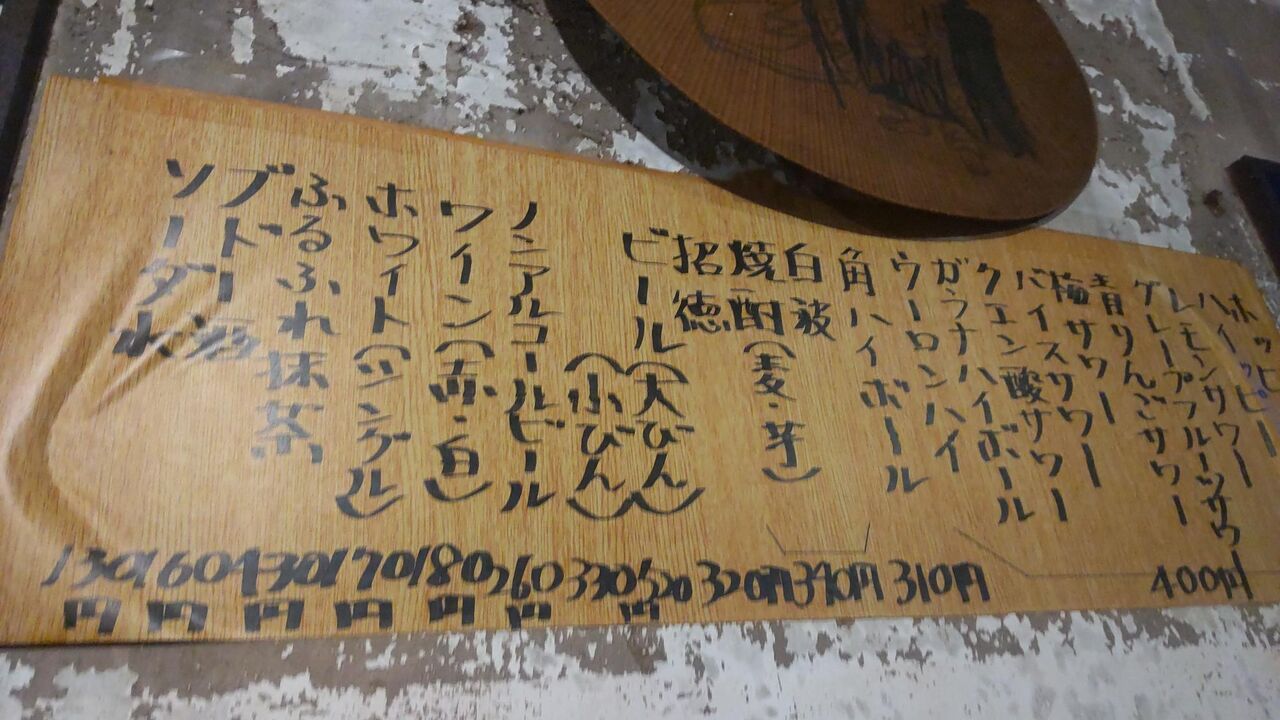 ホッピー
ハイッピー
レモンサワー
グレープフルーツサワー
青りんごサワー
梅サワー
バイスサワー
クエン酸サワー
ガラナハイボール
ウーロンハイ
角ハイボール
白波
焼酎(麦・芋)
招徳
ビール(大びん)
(小びん)
ノンアルコールビール
ワイン(赤・白)
ホワイト(シングル)
ふるふれ抹茶
ブドー酒
ソーダ水
400円
310円
340円
320円
520円
330
260円
180円
170円
430円
160円
130円